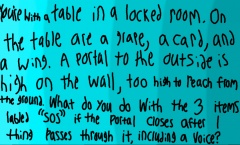 You're with a table in a locked room. On
the table are a grape, a card, and
a wing. A portal to the outside is
high on the wall, too high to reach from
the ground. What do you do with the 3 items
labled "SOS" if the portal closes after 1
thing passes through it, including a voice?